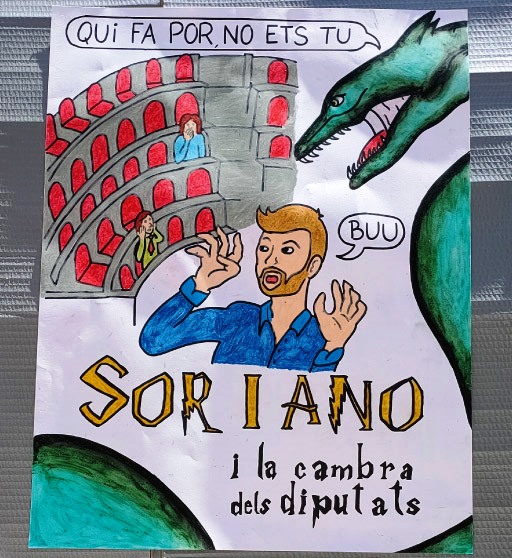 QUi FA POR, NO ETS TU
BUU
SORIANO
i la cambra
dels diputats